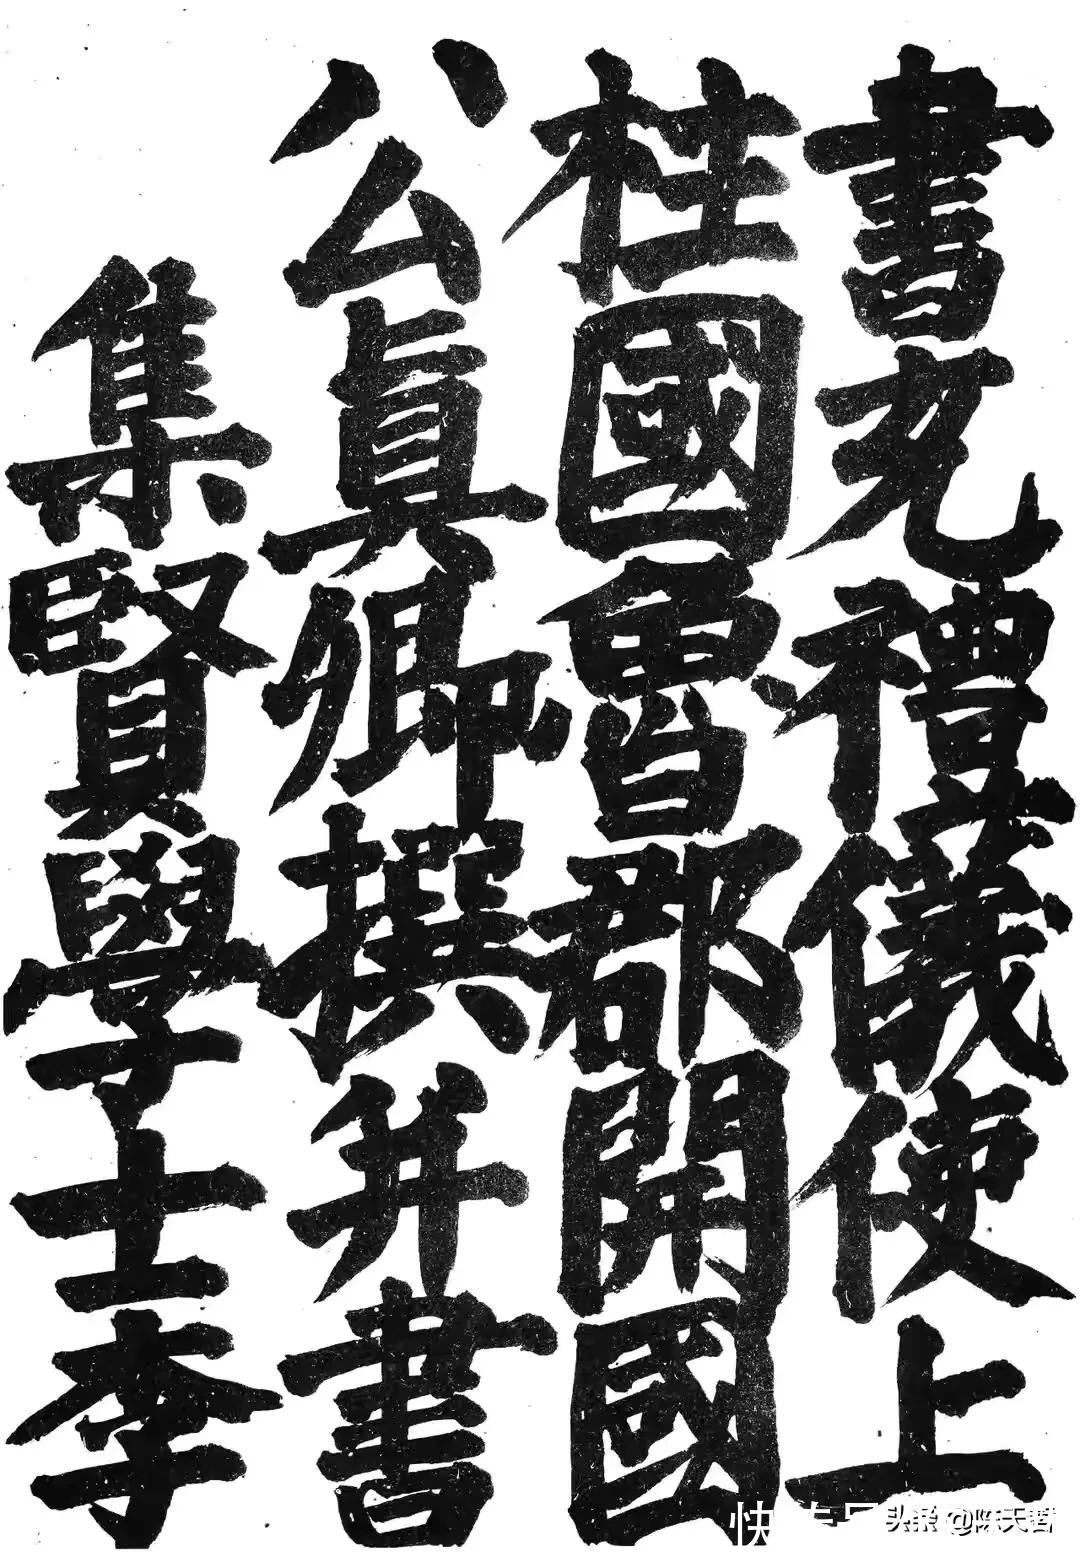 書充禮儀使上
柱國魯郡開國
公眞卿撰并書
集賢學士李
快传号
头条